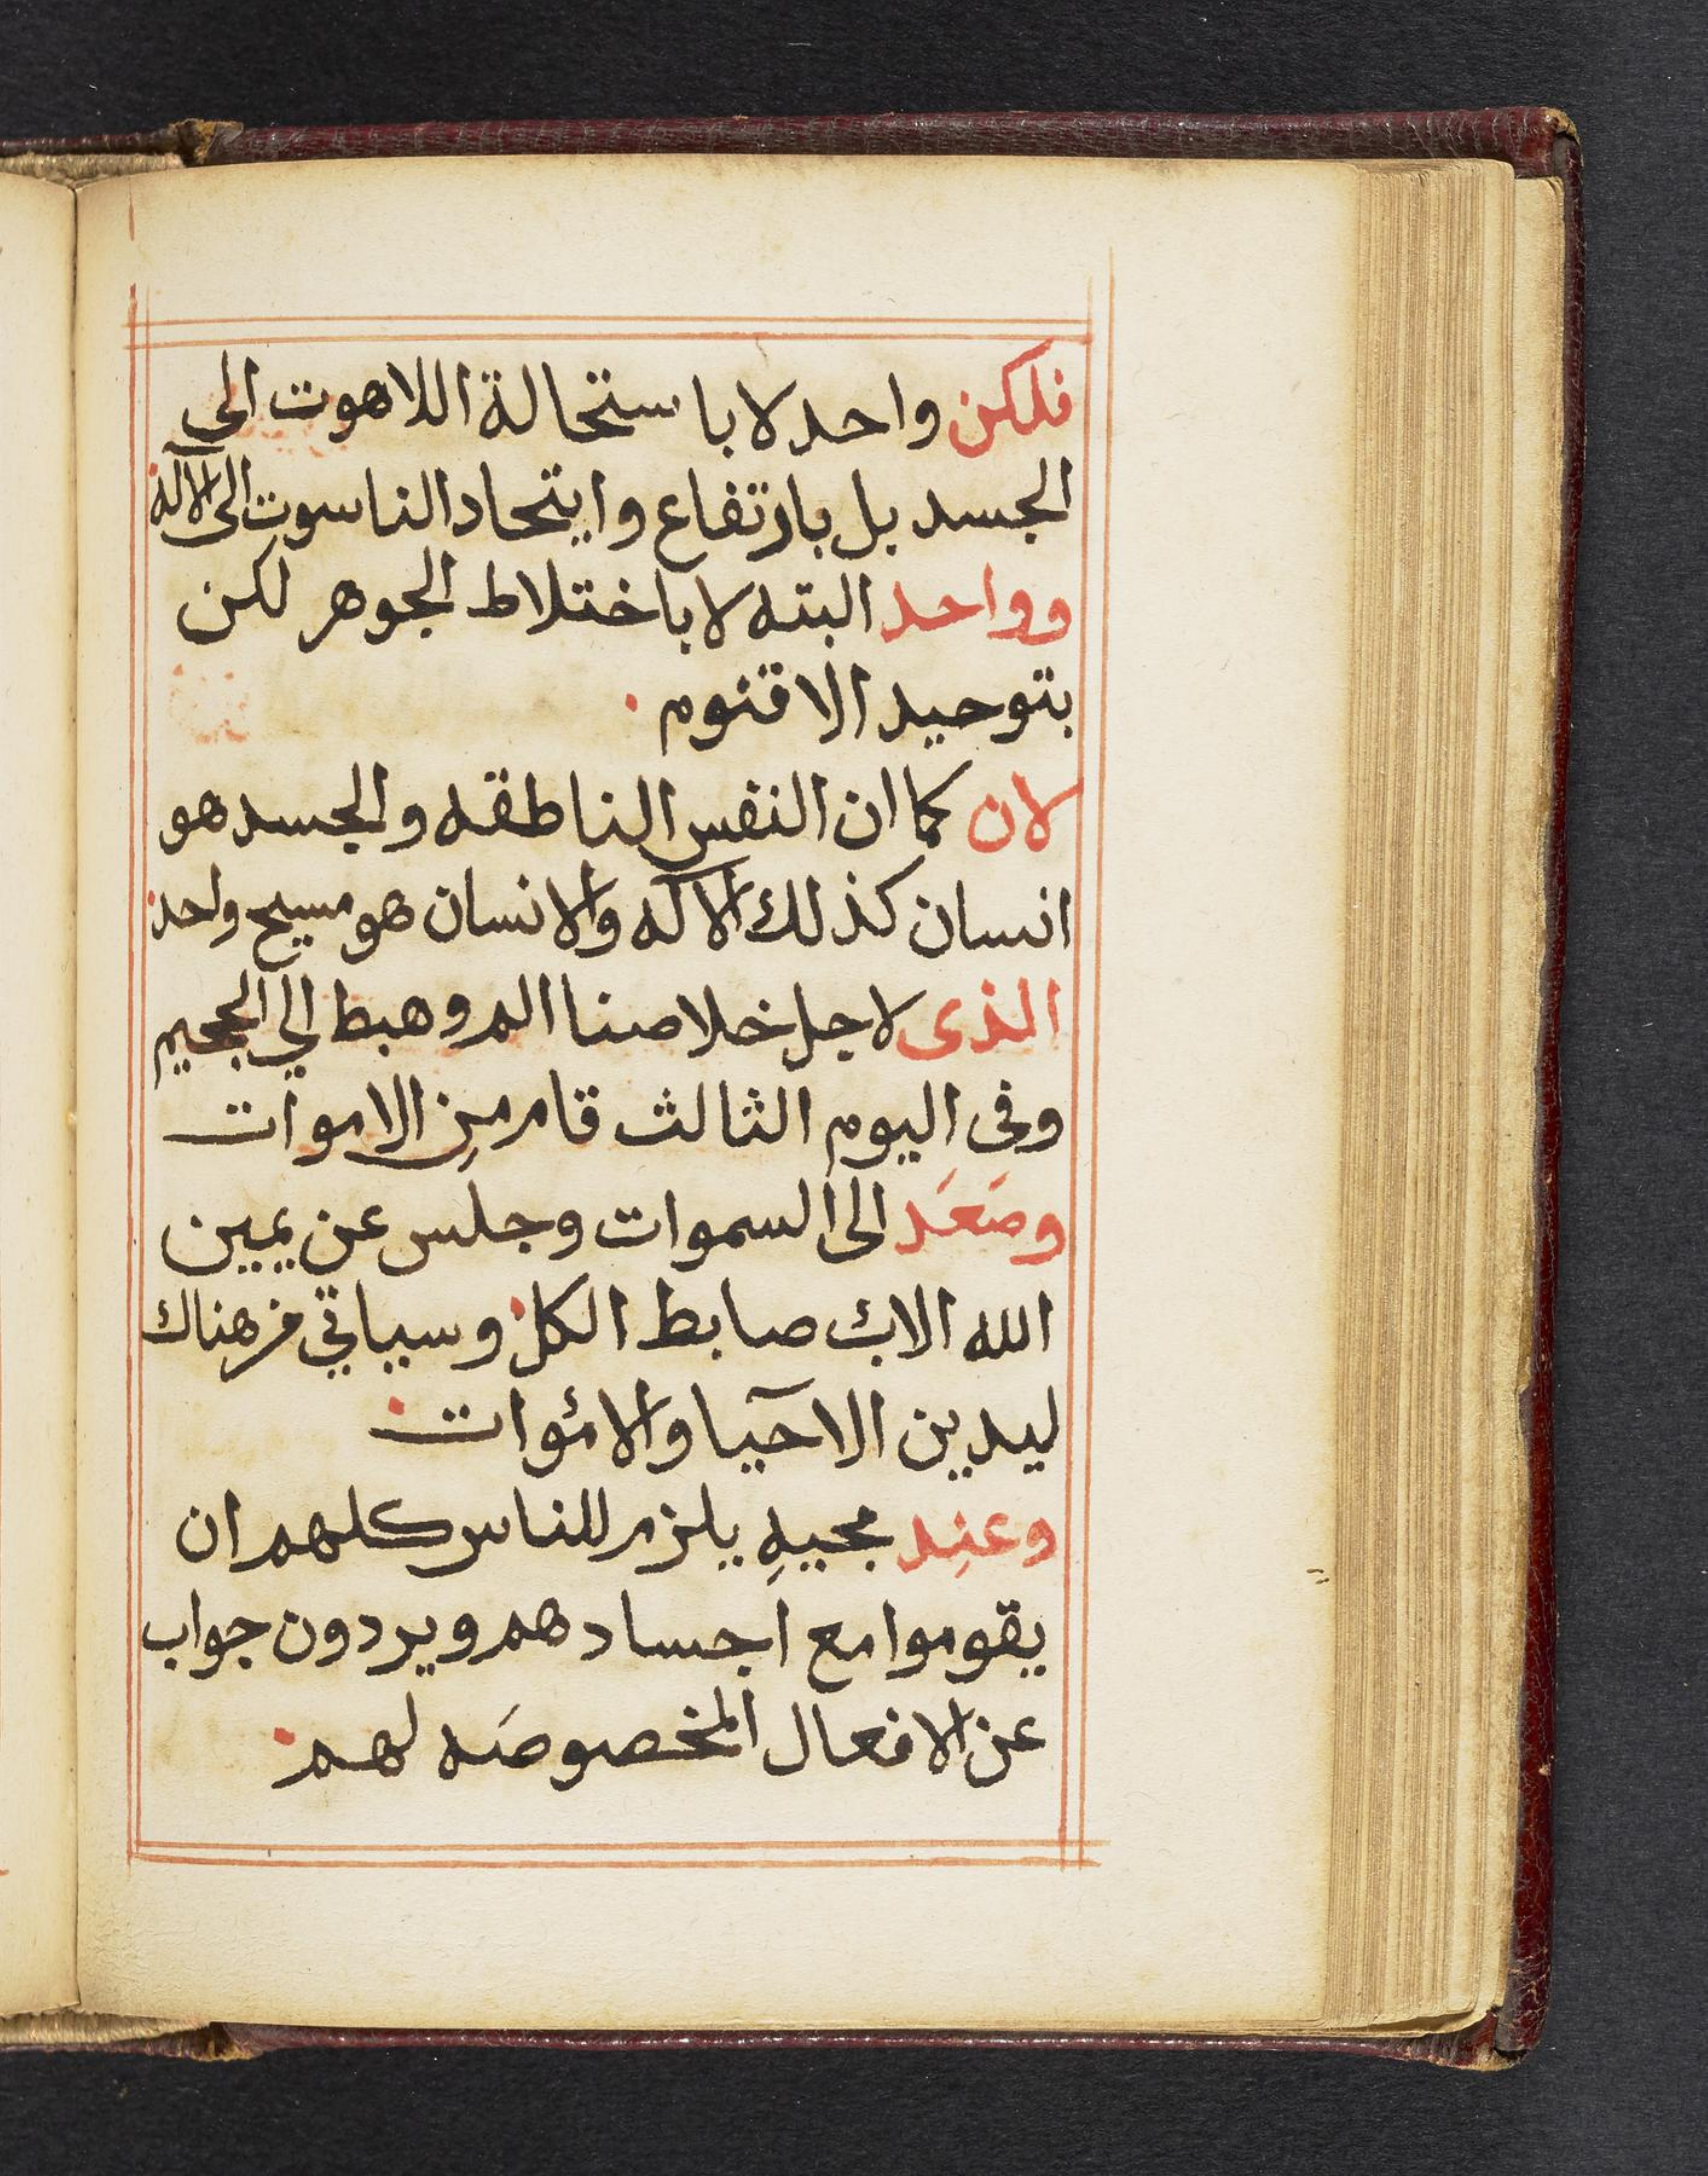 فلكن واحد لا باستحالة اللاهوت الى
الجسد بل بارتفاع وايتحاد الناسوت الى الآله
وواحد البته لا باختلاط الجوهر لكن
بتوحيد الاقنوم.
لان كما ان النفس الناطقه والجسد هو
انسان كذلك الاآله والانسان هو مسيح واحد.
الذى لاجل خلاصنا الم وهبط الي الججيم
وفى اليوم الثالث قام من الاموات
وصَعَد الى السموات وجلس عن يمين
الله الاب صابط الكل. وسياتي من هناك
ليدين الاحيا والاموات.
وعنِد مجيهِ يلزم للناس كلهم ان
يقوموا مع اجسادهم ويردون جواب
عن الافعال المخصوصَه لهم.